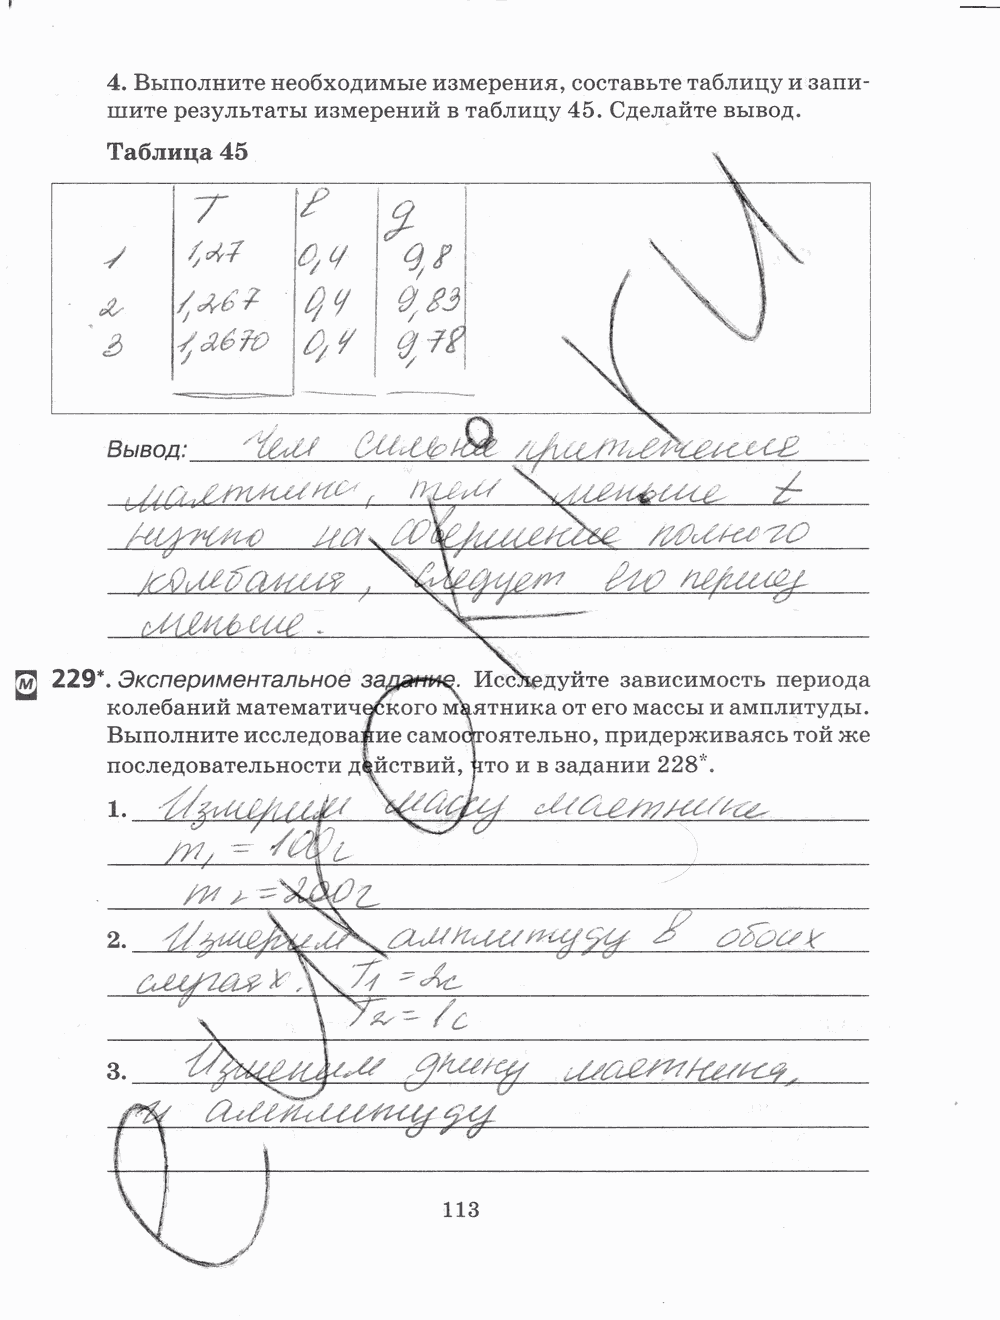 4. Выполните необходимые измерения, составьте таблицу и запи-
шите результаты измерений в таблицу 45. Сделайте вывод.
Таблица 45
T l g
1 1,27 0,4 9,8
2 1,267 0,4 9,83
3 1,2670 0,4 9,78
Вывод: Чем сильна притяжение
маятника, тем меньше t
нужно на совершение полного
колебания, следует его период
меньше.
М 229*. Экспериментальное задание. Исследуйте зависимость периода
колебаний математического маятника от его массы и амплитуды.
Выполните исследование самостоятельно, придерживаясь той же
последовательности действий, что и в задании 228*.
1. Измерим массу маятника
m₁ = 100г
m₂ = 200г
2. Измерим амплитуду в обоих
случаях. T₁ = 2с
T₂ = 1с
3. Изменим длину маятника,
и амплитуду
113